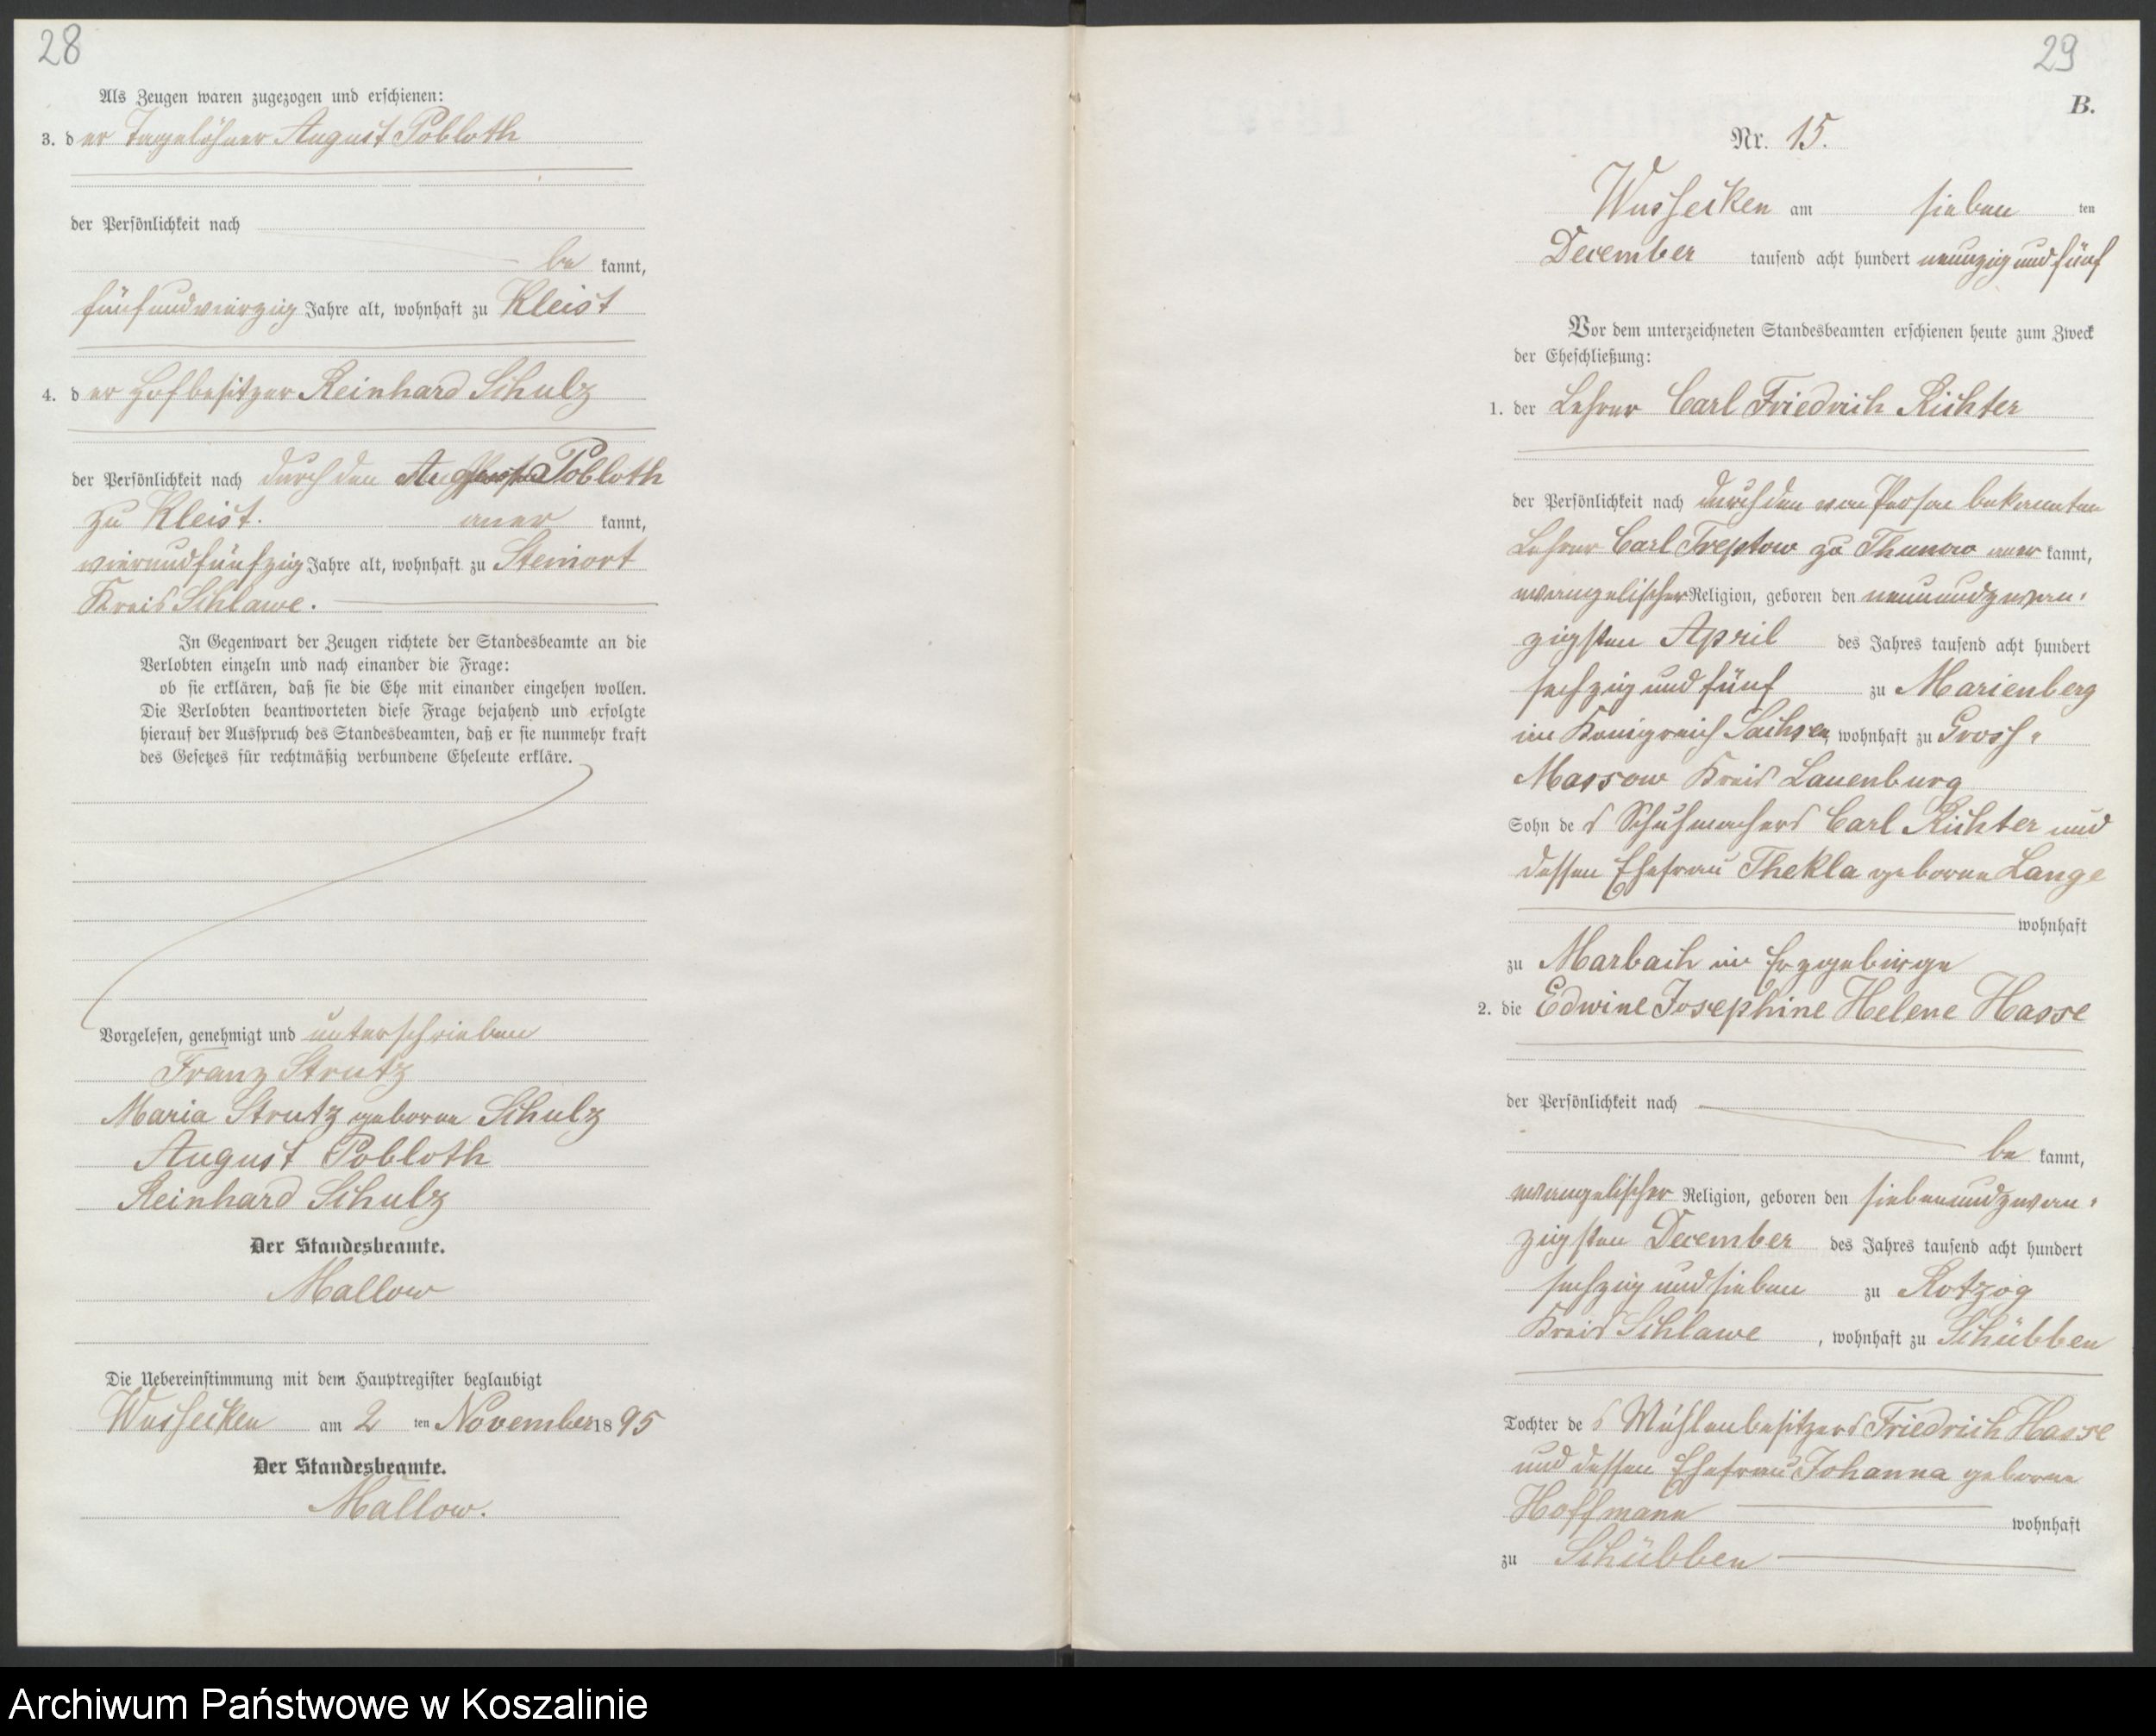 28
Als Zeugen waren zugezogen und erschienen:
3. der Tagelöhner August Pobloth
der Persönlichkeit nach
be kannt,
fünfundvierzig Jahre alt, wohnhaft zu Kleist
4. der Hofbesitzer Reinhard Schulz
der Persönlichkeit nach durch den August Pobloth
zu Kleist. aner kannt,
vierundfünfzig Jahre alt, wohnhaft zu Steinort
Kreis Schlawe.
In Gegenwart der Zeugen richtete der Standesbeamte an die
Verlobten einzeln und nach einander die Frage:
ob sie erklären, daß sie die Ehe mit einander eingehen wollen.
Die Verlobten beantworteten diese Frage bejahend und erfolgte
hierauf der Ausspruch des Standesbeamten, daß er sie nunmehr kraft
des Gesetzes für rechtmäßig verbundene Eheleute erkläre.
Vorgelesen, genehmigt und unterschrieben
Franz Strutz
Maria Strutz geborne Schulz
August Pobloth
Reinhard Schulz
Der Standesbeamte.
Mallow
Die Uebereinstimmung mit dem Hauptregister beglaubigt
Wussecken am 2 ten November 1895
Der Standesbeamte.
Mallow.
29
B.
Nr. 15.
Wussecken am sieben ten
December tausend acht hundert neunzig und fünf
Vor dem unterzeichneten Standesbeamten erschienen heute zum Zweck
der Eheschließung:
1. der Lehrer Carl Friedrich Richter
der Persönlichkeit nach durch den von Person bekannten
Lehrer Carl Treptow zu Thunow aner kannt,
evangelischer Religion, geboren den neunundzwan-
zigsten April des Jahres tausend acht hundert
sechzig und fünf zu Marienberg
im Königreich Sachsen, wohnhaft zu Gross-
Massow Kreis Lauenburg
Sohn des Schuhmachers Carl Richter und
dessen Ehefrau Thekla geborne Lange
wohnhaft
zu Marbach im Erzgebirge
2. die Edwine Josephine Helene Hasse
der Persönlichkeit nach
be kannt,
evangelischer Religion, geboren den siebenundzwan-
zigsten December des Jahres tausend acht hundert
sechzig und sieben zu Rotzog
Kreis Schlawe, wohnhaft zu Schübben
Tochter des Mühlenbesitzers Friedrich Hasse
und dessen Ehefrau Johanna geborne
Hoffmann wohnhaft
zu Schübben
Archiwum Państwowe w Koszalinie